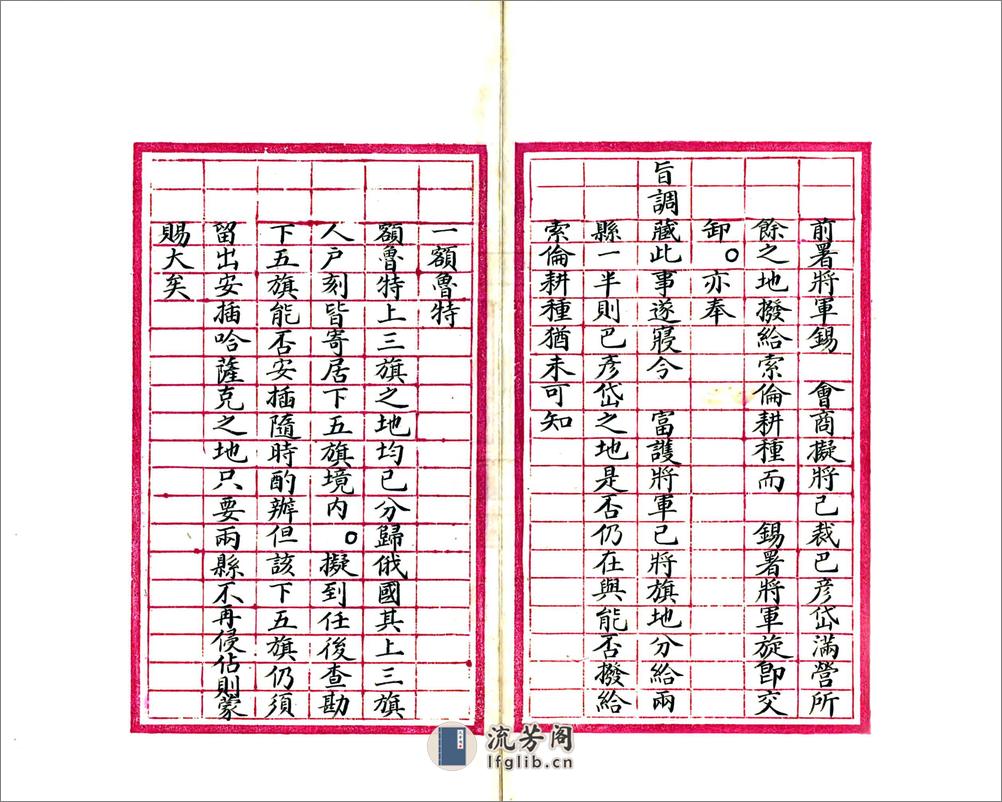 前署將軍錫　會商擬將已裁巴彥岱滿營所
餘之地撥給索倫耕種而　錫署將軍旋卽交
卸。亦奉
旨調藏此事遂寢今　富護將軍已將旗地分給兩
縣一半則巴彥岱之地是否仍在與能否撥給
索倫耕種猶未可知
一額魯特
額魯特上三旗之地均已分歸俄國其上三旗
人戶刻皆寄居下五旗境内。擬到任後查勘
下五旗能否安插隨時酌辦但該下五旗仍須
留出安插哈薩克之地只要兩縣不再侵佔則蒙
賜大矣
流芳阁
lfglib.cn